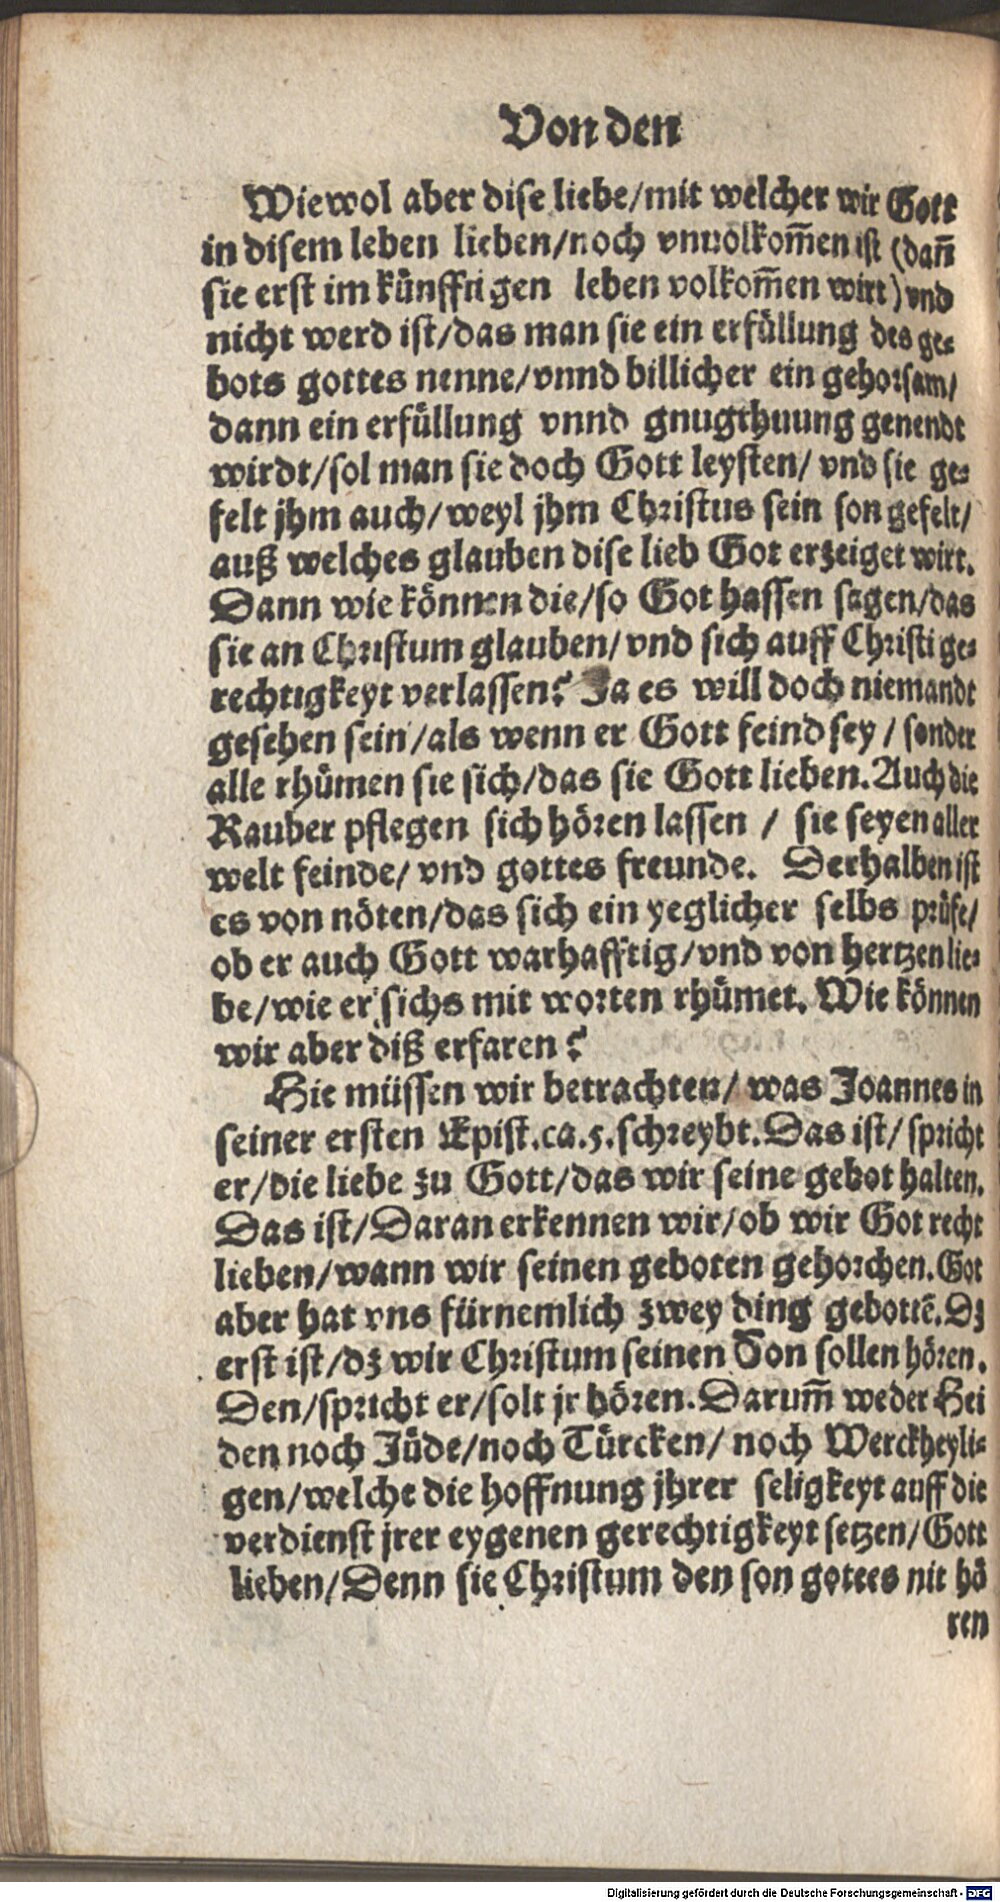 Von den
Wiewol aber dise liebe/mit welcher wir Gott
in disem leben lieben/noch vnuolkom̃en ist (dañ
sie erst im künfftigen leben volkom̃en wirt) vnd
nicht werd ist/das man sie ein erfüllung des ge⸗
bots gottes nenne/vnnd billicher ein gehorsam/
dann ein erfüllung vnnd gnugthuung genendt
wirdt/sol man sie doch Gott leysten/ vnd sie ge⸗
felt jhm auch/weyl jhm Christus sein son gefelt/
auß welches glauben dise lieb Got erzeiget wirt.
Dann wie können die/so Got hassen sagen/das
sie an Christum glauben/vnd sich auff Christi ge⸗
rechtigkeyt verlassen? Ja es will doch niemandt
gesehen sein/als wenn er Gott feind sey / sonder
alle rhümen sie sich/das sie Gott lieben. Auch die
Rauber pflegen sich hören lassen / sie seyen aller
welt feinde/vnd gottes freunde. Derhalben ist
es von nöten/das sich ein yeglicher selbs prüfe/
ob er auch Gott warhafftig/vnd von hertzen lie⸗
be/wie er sichs mit worten rhümet. Wie können
wir aber diß erfaren?
Hie müssen wir betrachten/ was Joannes in
seiner ersten Epist.ca.5.schreybt. Das ist/ spricht
er/die liebe zu Gott/das wir seine gebot halten.
Das ist/Daran erkennen wir/ob wir Got recht
lieben/wann wir seinen geboten gehorchen. Got
aber hat vns fürnemlich zwey ding gebottẽ. Dz
erst ist/dz wir Christum seinen Son sollen hören.
Den/spricht er/solt jr hören. Darum̃ weder Hei
den noch Jüde/noch Türcken/ noch Werckheyli⸗
gen/welche die hoffnung jhrer seligkeyt auff die
verdienst jrer eygenen gerechtigkeyt setzen/Gott
lieben/Denn sie Christum den son gottes nit hö
ren
Digitalisierung gefördert durch die Deutsche Forschungsgemeinschaft - DFG